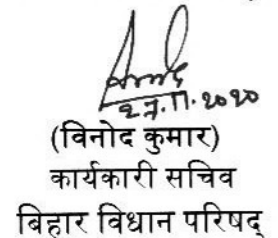 27.11.2020
(विनोद कुमार)
कार्यकारी सचिव
बिहार विधान परिषद्